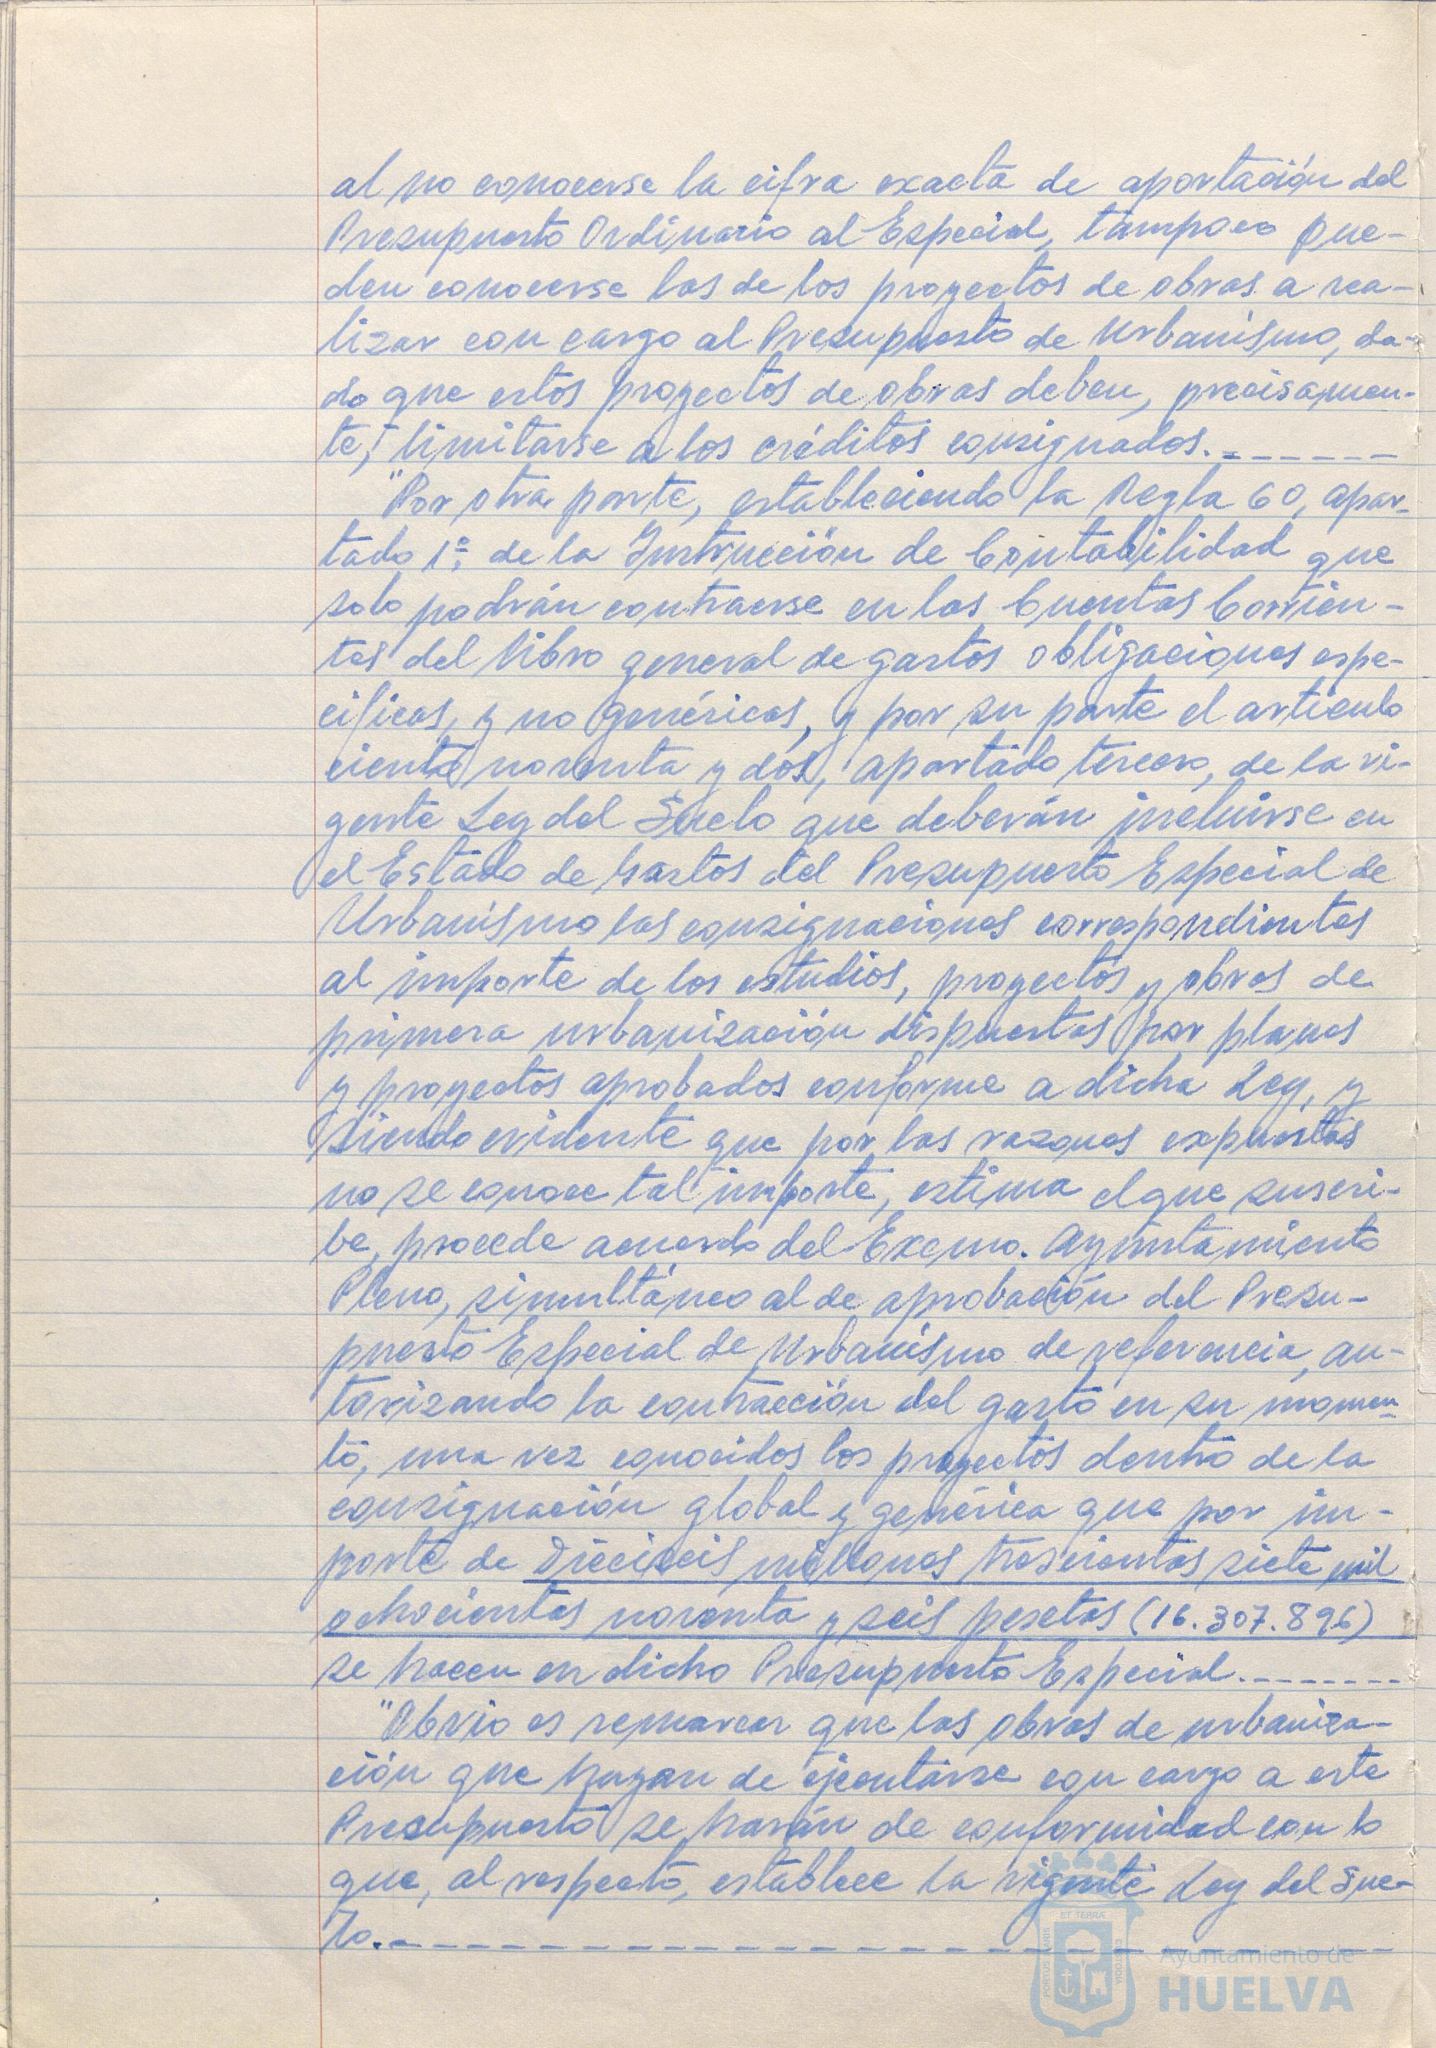 al no conocerse la cifra exacta de aportación del
Presupuesto Ordinario al Especial, tampoco pue-
den conocerse las de los proyectos de obras a rea-
lizar con cargo al Presupuesto de Urbanismo, da-
do que estos proyectos de obras deben, precisamen-
te, limitarse a los créditos consignados.
"Por otra parte, estableciendo la Regla 60, apar-
tado 1º, de la Instrucción de Contabilidad que
solo podrán contraerse en las Cuentas Corrien-
tes del libro general de gastos obligaciones espe-
cificas, y no genéricas, y por su parte el articulo
ciento noventa y dos, apartado tercero, de la vi-
gente Ley del Suelo que deberán incluirse en
el Estado de Gastos del Presupuesto Especial de
Urbanismo las consignaciones correspondientes
al importe de los estudios, proyectos y obras de
primera urbanización dispuestas por planes
y proyectos aprobados conforme a dicha Ley, y
siendo evidente que por las razones expuestas
no se conoce tal importe, estima el que suscri-
be, procede acuerdo del Excmo. Ayuntamiento
Pleno, simultáneo al de aprobación del Presu-
puesto Especial de Urbanismo de referencia, au-
torizando la contracción del gasto en su momen-
to, una vez conocidos los proyectos dentro de la
consignación global y genérica que por im-
porte de Dieciseis millones trescientas siete mil
ochocientas noventa y seis pesetas (16.307.896)
se hacen en dicho Presupuesto Especial.
"Obvio es remarcar que las obras de urbaniza-
ción que hayan de ejecutarse con cargo a este
Presupuesto se harán de conformidad con lo
que, al respecto, establece la vigente Ley del Sue-
lo.
PORTUS MARIS ET TERRAE CUSTODIA
Ayuntamiento de
HUELVA